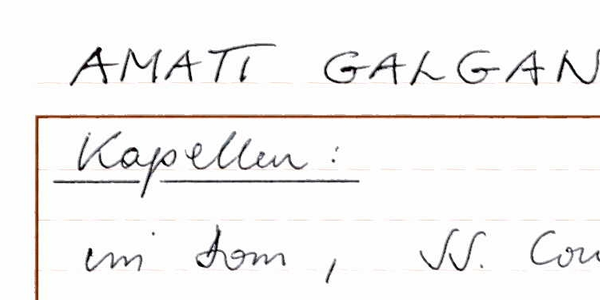 AMATI GALGAN
Kapellen :
im Dom, SS. Con